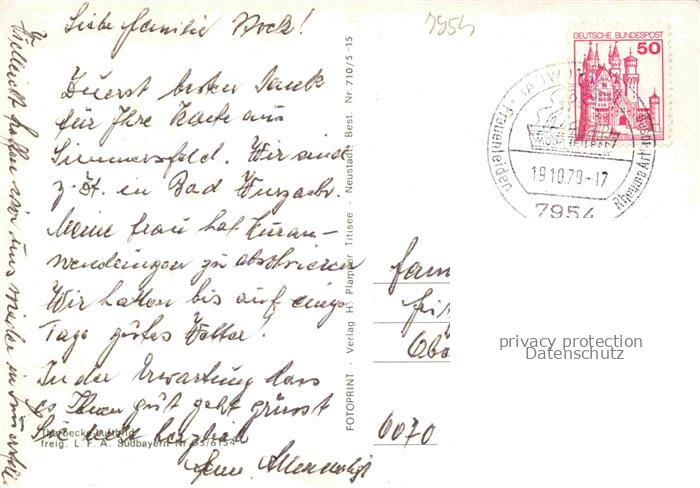 7954
Liebe Familie Stock!
Zuerst besten Dank
für Ihre Karte aus
Simmersfeld. Wir sind
z. Zt. in Bad Wurzach.
Meine Frau hat Kuran-
wendungen zu absolvieren
Wir hatten bis auf einige
Tage gutes Wetter!
In der Erwartung dass
es Ihnen gut geht grüsst
Sie recht herzlich
Vielleicht treffen wir uns wieder in
Luftbild
freig. L. F. A. Südbayern Nr.
FOTOPRINT · Verlag H. Plamper Titisee · Neustadt, Best. Nr. 710/5-15
DEUTSCHE BUNDESPOST
50
BAD WU
Frauenleiden
Rheuma Art
19.10.79-17
7954
Fam
6070
privacy protection
Datenschutz